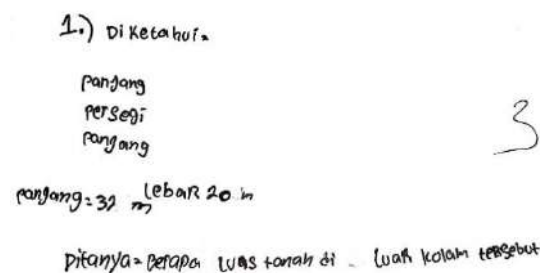 1.) Diketahui =
panjang
persegi
panjang
3
panjang = 32 m lebaR 20 m
Ditanya = Berapa luas tanah di luar kolam tersebut